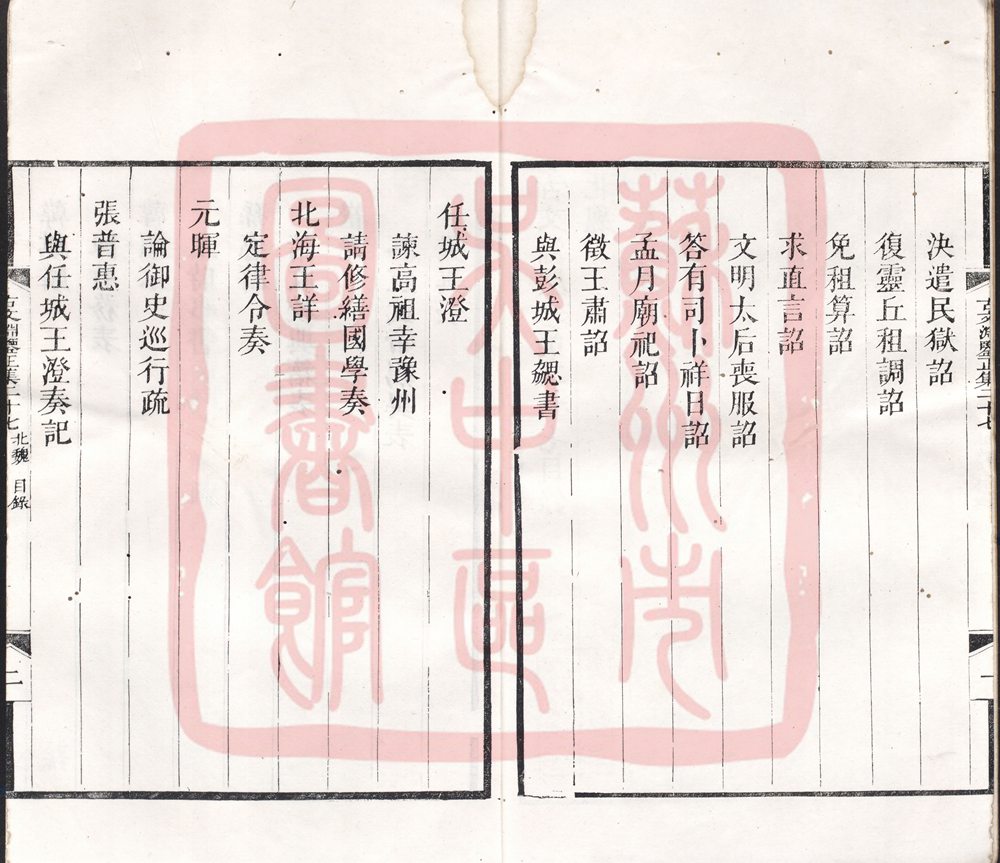 決遣民獄詔
復靈丘租調詔
免租算詔
求直言詔
文明太后喪服詔
答有司卜祥日詔
孟月廟祀詔
徵王肅詔
與彭城王勰書
任城王澄
諫高祖幸豫州
請修繕國學奏
北海王詳
定律令奏
元暉
論御史巡行疏
張普惠
與任城王澄奏記
古文淵鑒正集二十七 北魏 目錄
二
蘇州市
吳中區
圖書館